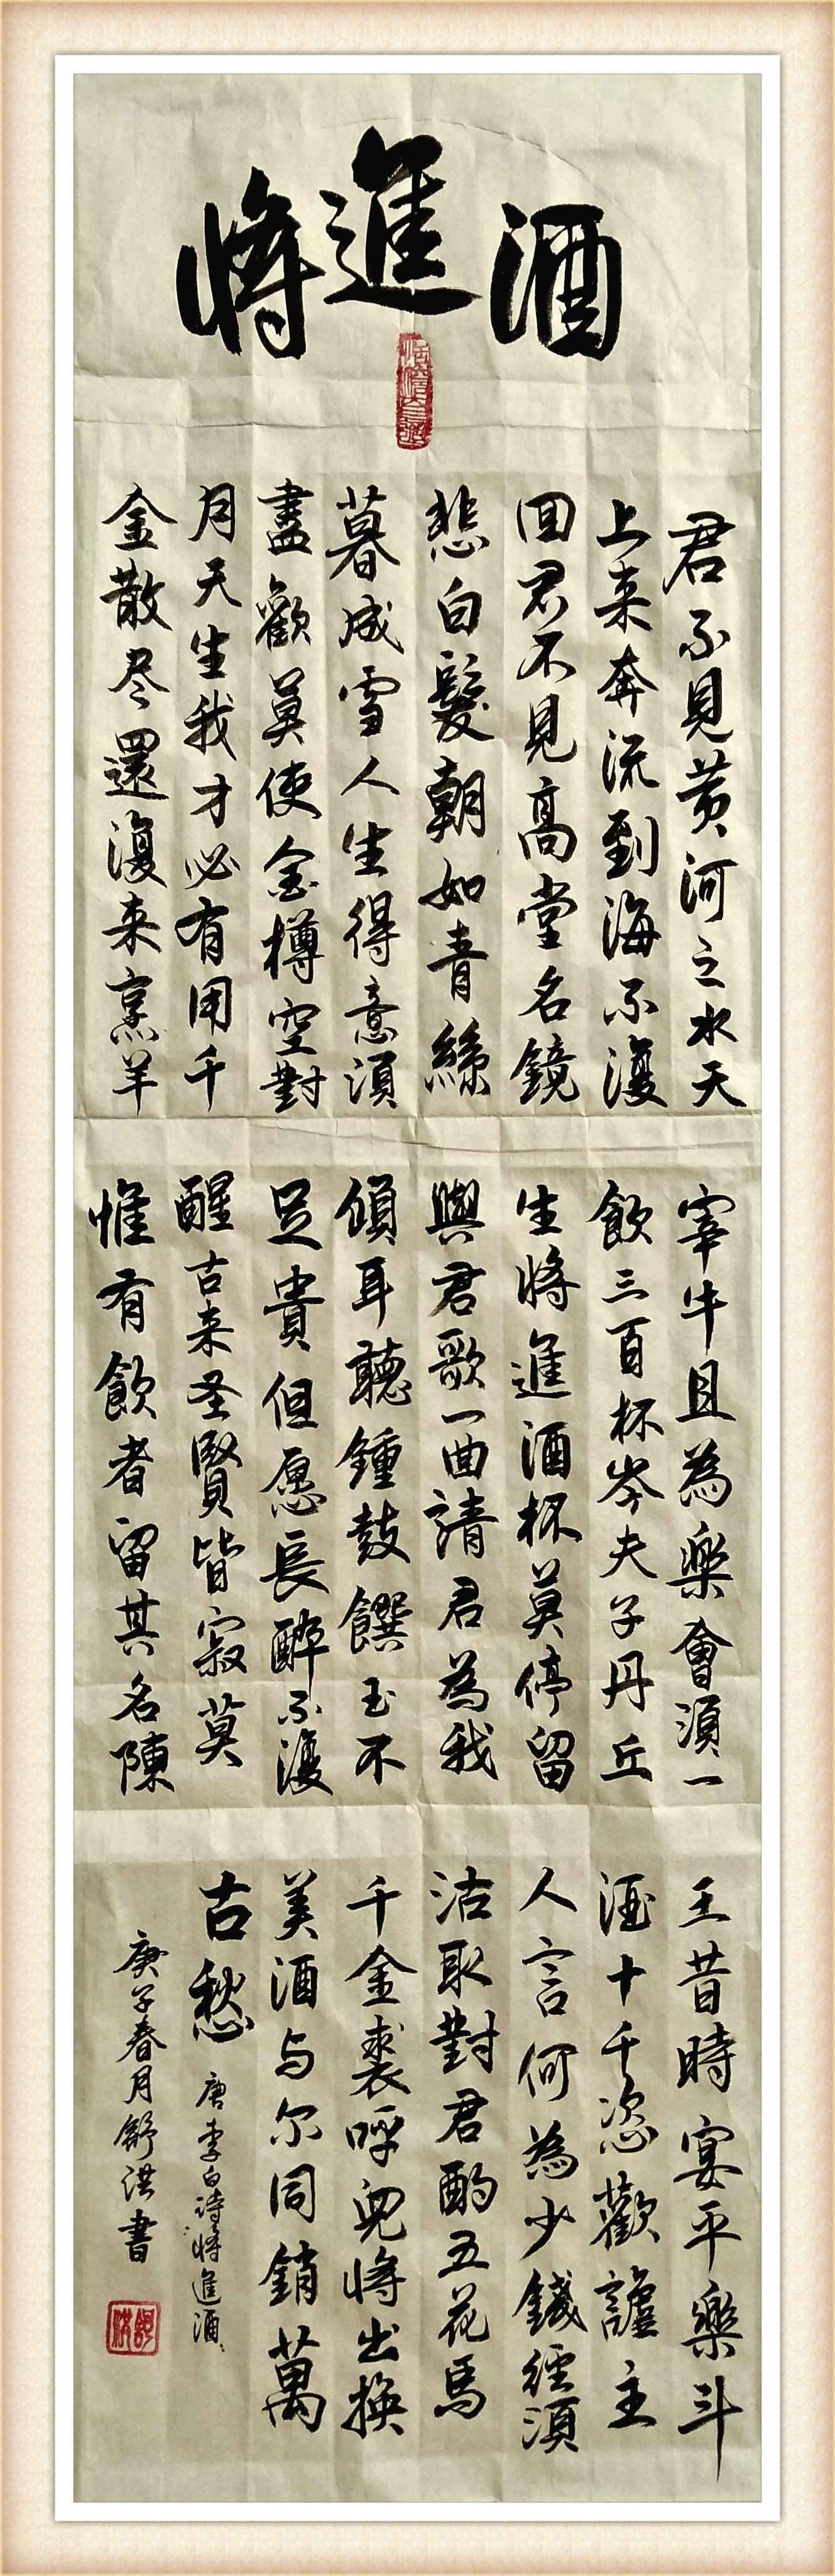 將進酒
君不見黄河之水天
上来奔流到海不復
回君不見高堂名鏡
悲白髮朝如青絲
暮成雪人生得意須
盡歡莫使金樽空對
月天生我才必有用千
金散尽還復来烹羊
宰牛且為樂會須一
飲三百杯岑夫子丹丘
生將進酒杯莫停留
與君歌一曲請君為我
傾耳聽鍾鼓饌玉不
足貴但愿長醉不復
醒古来圣賢皆寂莫
惟有飲者留其名陳
王昔時宴平樂斗
酒十千恣歡謔主
人言何為少錢經須
沽取對君酌五花馬
千金裘呼兒將出換
美酒与尔同銷萬
古愁 唐李白詩將進酒
庚子春月舒洪書
舒洪